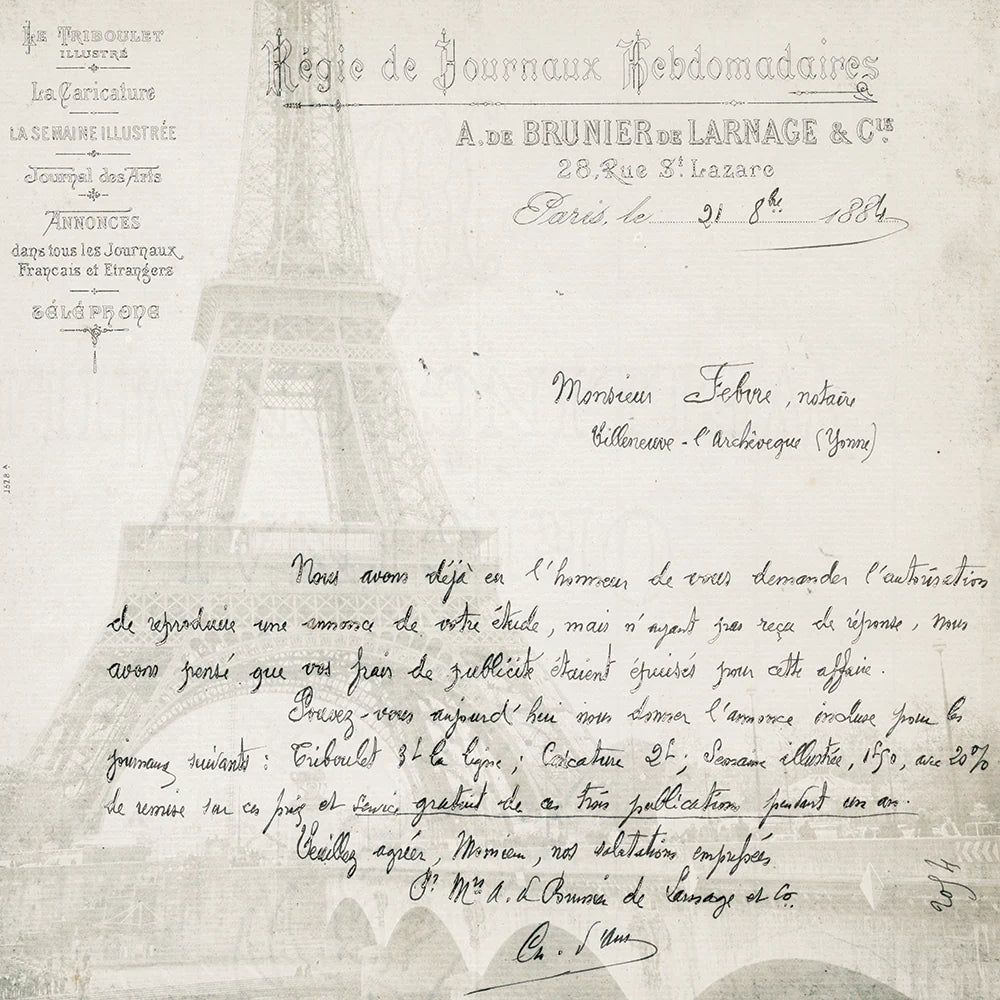 Le Triboulet
illustré
La Caricature
La Semaine Illustrée
Journal des Arts
Annonces
dans tous les Journaux
Français et Etrangers
Téléphone
Régie de Journaux Hebdomadaires
A. de Brunier de Larnage & Cie
28, Rue St Lazare
Paris, le 21 8bre 1884
Monsieur Febvre, notaire
Villeneuve-l'Archêveque (Yonne)
Nous avons déjà eu l'honneur de vous demander l'autorisation
de reproduire une annonce de votre étude, mais n'ayant pas reçu de réponse, nous
avons pensé que vos frais de publicité étaient épuisés pour cette affaire.
Pouvez-vous aujourd'hui nous donner l'annonce incluse pour les
journaux suivants : Triboulet 3f la ligne ; Caricature 2f ; Semaine illustrée, 1f50, avec 20%
de remise sur ces prix et service gratuit de ces trois publications pendant un an.
Veuillez agréer, Monsieur, nos salutations empressées
Pr Mrs A. de Brunier de Larnage et Co.
1528 A